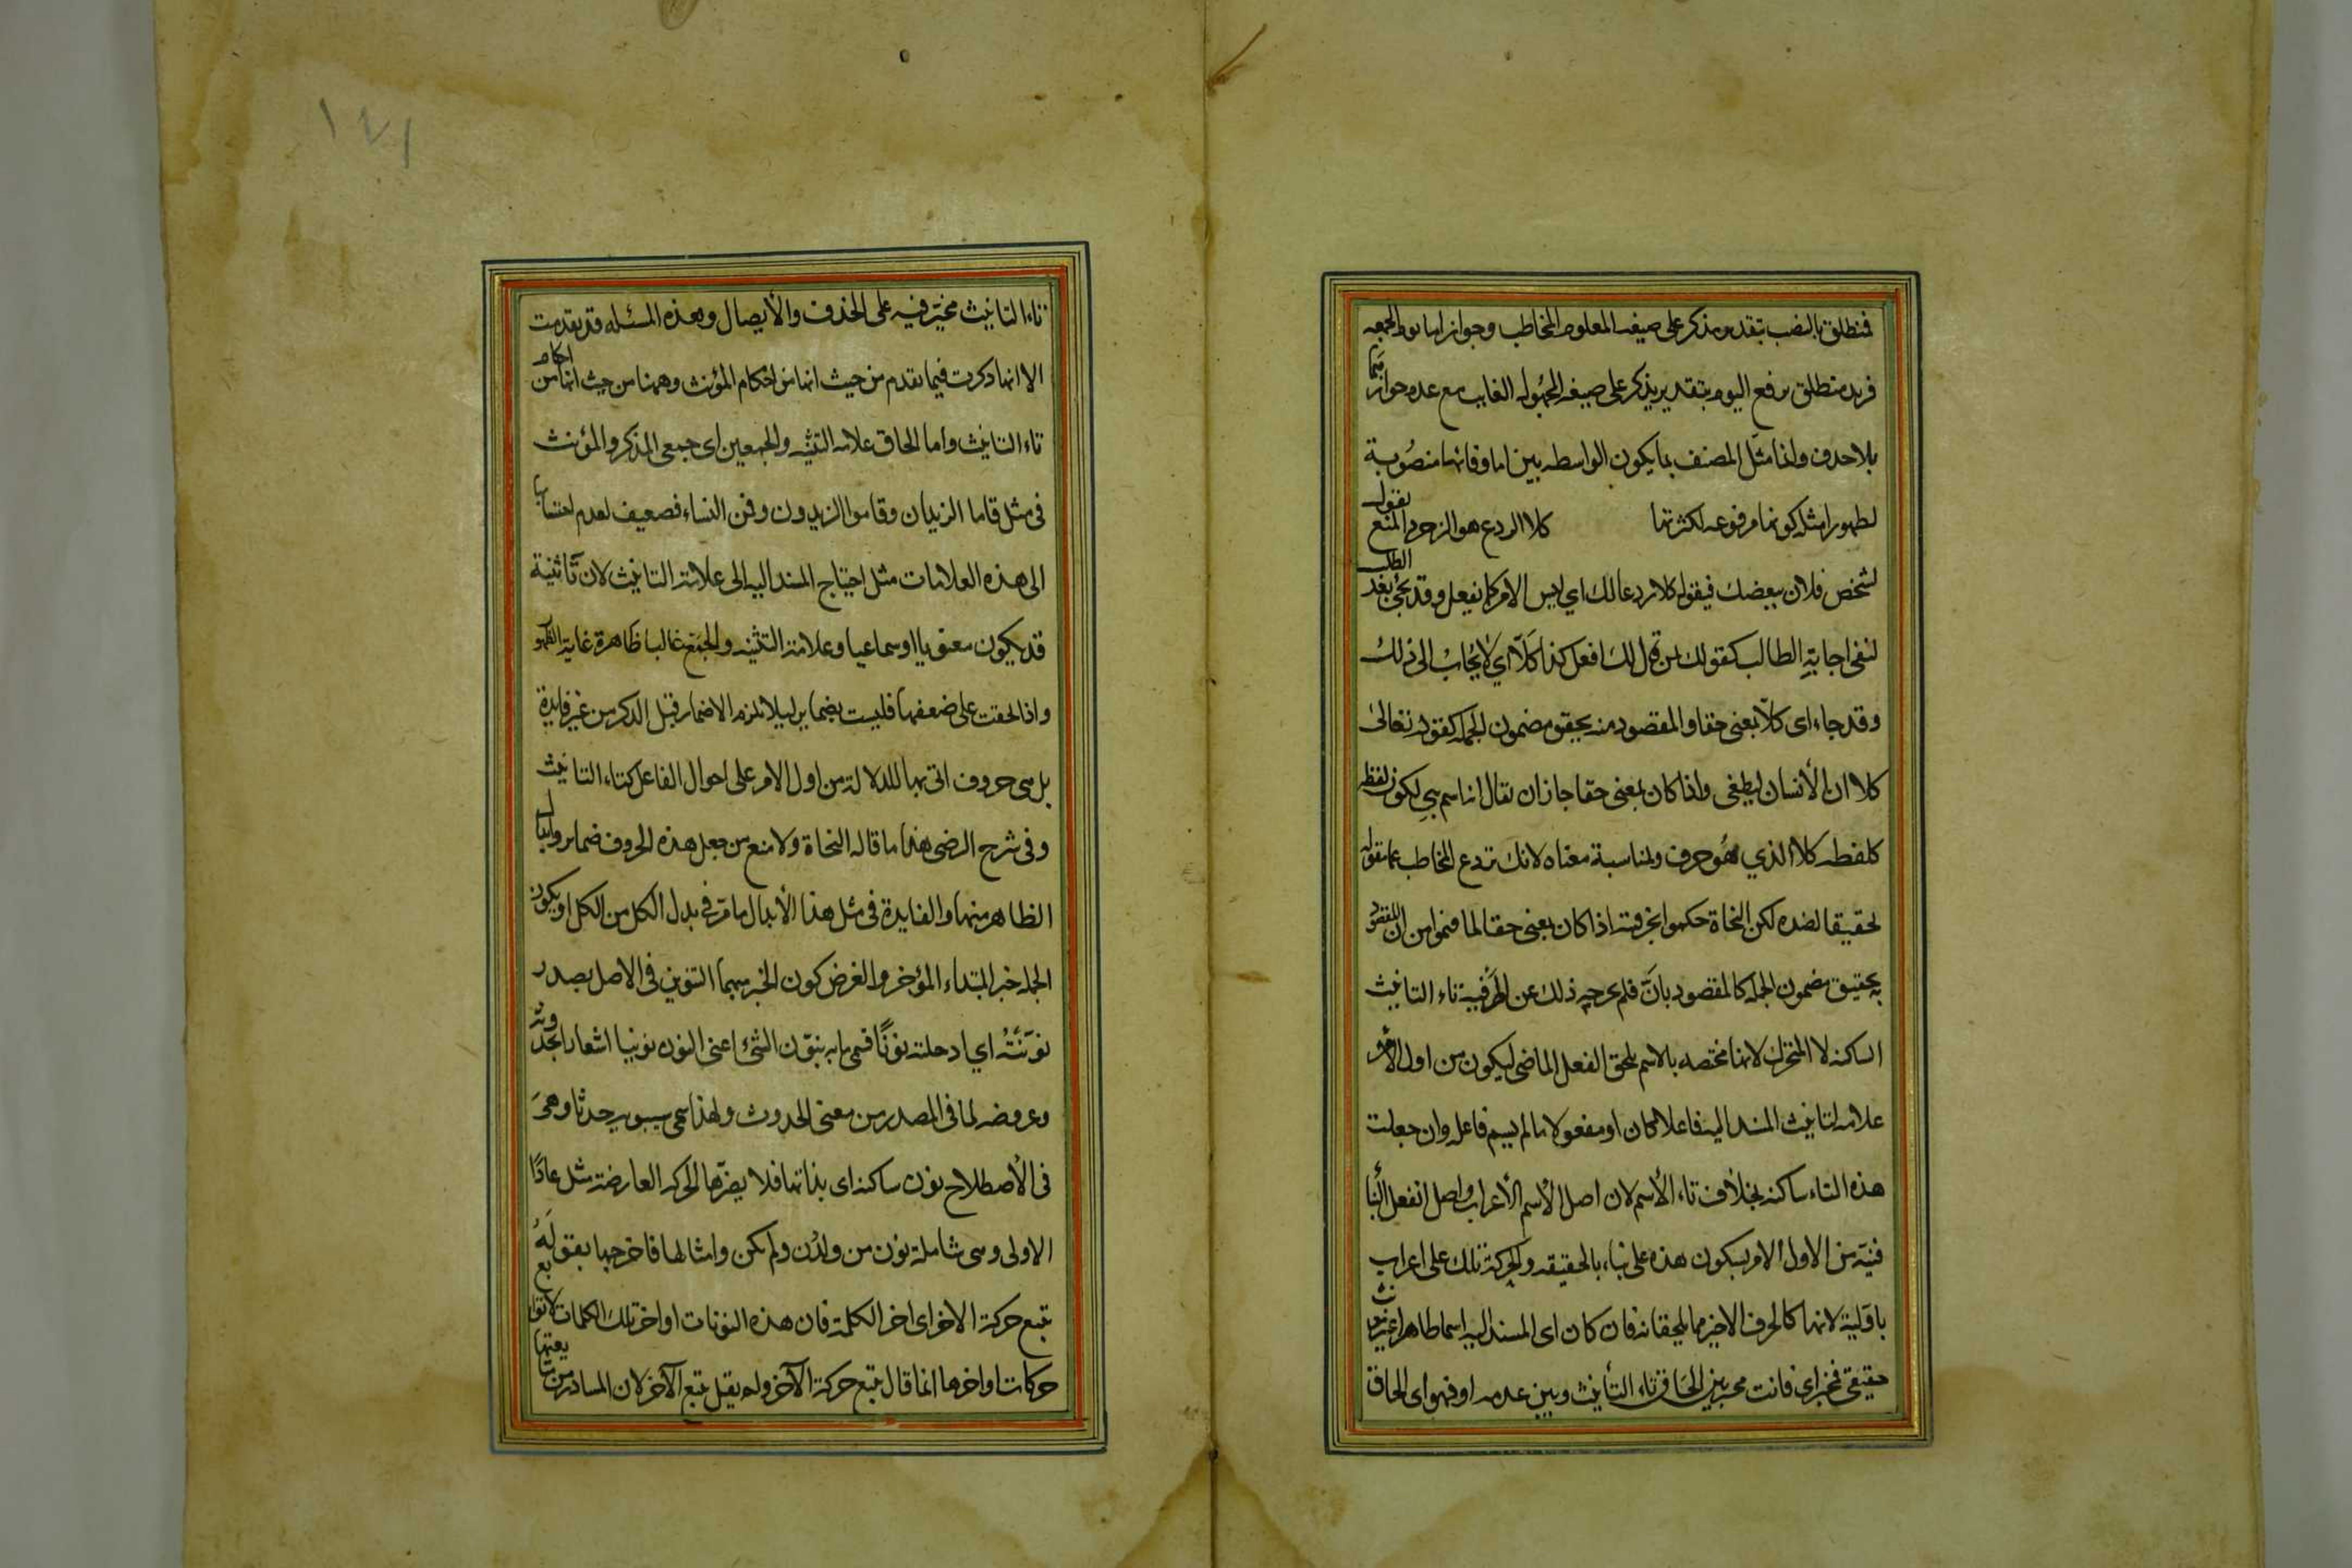 فمنطلق بالنصب بتقدير مذكر على صيغه المعلوم المخاطب وجواز اما يوم الجمعه
فزيد منطلق برفع اليوم بتقدير يذكر على صيغه المجهول الغايب مع عدم جواز
بلا حذف وانما مثل المصنف بما يكون الواسطه بين اما وفائها منصوبة
لظهور امثله كونها مرفوعه لكثرتها كلا الردع هو الزجر والمنع يقول
لشخص فلان يبغضك فيقول كلا ردعا لك اي ليس الامر كما تفعل وقد يجئ بعد الطلب
لنفى اجابة الطالب كقولك لمن قال لك افعل كذا كلّا اي لا يجاب الى ذلك
وقد جاء اى كلّا بمعنى حقا والمقصود منه تحقق مضمون الجمله كقوله تعالى
كلا ان الأنسان ليطغى واذا كان بمعنى حقا جاز ان يقال انه اسم بنى لكون لفظه
كلفظه كلا الذي هو حرف ولمناسبة معناه لانك تردع المخاطب عما يقوله
تحقيقا لضده لكن النحاة حكموا بحرفيته اذا كان بمعنى حقا لما فهموا من ان المقصود
به تحقيق مضمون الجمله كالمقصود بانّ فلم يخرجه ذلك عن الحرفية تاء التانيث
الساكنه لا المتحرك لانها مختصه بالاسم يلحق الفعل الماضى ليكون من اول الأمر
علامه لتانيث المسند اليه فاعلا كان او مفعولا ما لم يسم فاعله وان جعلت
هذه التاء ساكنه بخلاف تاء الأسم لان اصل الأسم الأعراب واصل الفعل البنا
فنبه من الاول الامر بسكون هذه على بناء بالحقيقه والحركة تلك على اعراب
باقلية لانها كالحرف الاخير مما يلحقانه فان كان اى المسند اليه اسما ظاهرا غير
حقيقى فمخير اى فانت مخير بين الحاق تاء التأنيث وبين عدمه او فهو اى الحاق
١٧١
تاء التانيث مخير فيه على الحذف والأيصال وهذه المسئله قد تقدمت
الا انها ذكرت فيما تقدم من حيث انها من احكام المؤنث وههنا من حيث انها من احكام
تاء التانيث واما الحاق علامه التثنيه والجمعين اى جمعى المذكر والمؤنث
فى مثل قاما الزيدان وقاموا الزيدون وقمن النساء فضعيف لعدم احتياج
الى هذه العلامات مثل احتياج المسند اليه الى علامة التانيث لان تأنثيه
قد يكون معنويا او سماعيا وعلامة التثنيه والجمع غالبا ظاهرة غاية الظهو
واذا لحقت على ضعفها فليست بضماير ليلا تلزم الاضمار قبل الذكر من غير فايدة
بل هى حروف اتى بها للدلالة من اول الامر على احوال الفاعل كتاء التانيث
وفى شرح الرضى هذا ما قاله النحاة ولا منع من جعل هذه الحروف ضماير وابدال
الظاهر منها والفايدة فى مثل هذا الأبدال ما مرّ فى بدل الكل من الكل او يكون
الجمله خبر المبتداء المؤخر والغرض كون الخبر مهما التنوين فى الاصل مصدر
نوّنته اي ادخلته نونا فسمى ما به ينوّن الشئ اعنى النون تنوينا اشعارا بحدوثه
وعروضه لما فى المصدر من معنى الحدوث ولهذا سمى سيبويه حدثا وهى
فى الأصطلاح نون ساكنه اى بذاتها فلا يضرّها الحركه العارضة مثل عادًا
الاولى وهى شاملة نون من ولدن ولم يكن وامثالها فاخرجها بقوله
تتبع حركة الاخر اى اخر الكلمة فان هذه النونات اواخر تلك الكلمات لا توابع
حركات اواخرها انما قال تتبع حركة الآخر ولم يقل تتبع الآخر لان المتبادر من